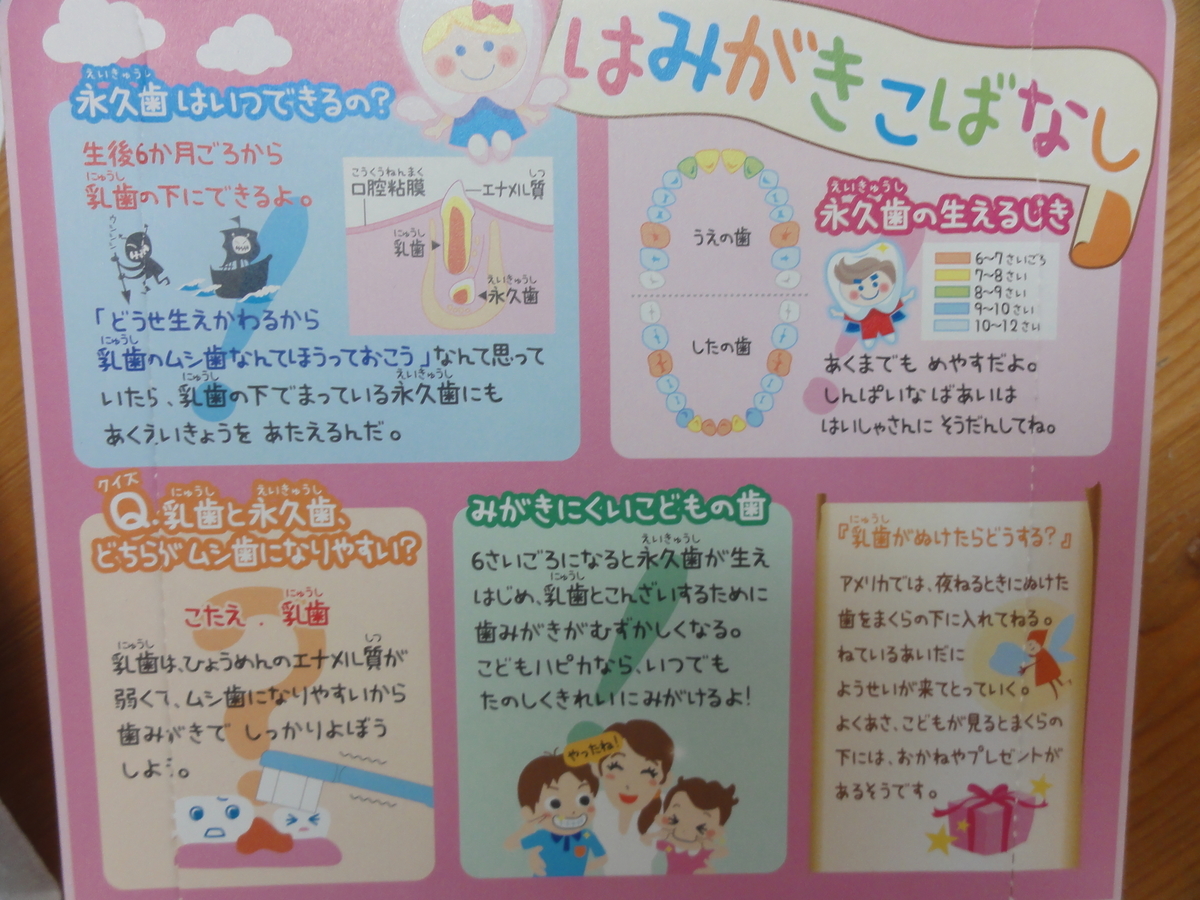 はみがきこばなし
永久歯はいつできるの?
えいきゅうし
生後6か月ごろから
乳歯の下にできるよ。
にゅうし
ウシシシ
口腔粘膜
こうくうねんまく
エナメル質
しつ
乳歯
にゅうし
永久歯
えいきゅうし
「どうせ生えかわるから
乳歯のムシ歯なんてほうっておこう」なんて思って
にゅうし
いたら、乳歯の下でまっている永久歯にも
にゅうし
えいきゅうし
あくえいきょうを あたえるんだ。
うえの歯
したの歯
永久歯の生えるじき
えいきゅうし
6〜7さいごろ
7〜8さい
8〜9さい
9〜10さい
10〜12さい
あくまでも めやすだよ。
しんぱいな ばあいは
はいしゃさんに そうだんしてね。
クイズ
Q.乳歯と永久歯、
にゅうし
えいきゅうし
どちらがムシ歯になりやすい?
こたえ . 乳歯
にゅうし
乳歯は、ひょうめんのエナメル質が
にゅうし
しつ
弱くて、ムシ歯になりやすいから
歯みがきで しっかりよぼう
しよう。
みがきにくいこどもの歯
6さいごろになると永久歯が生え
えいきゅうし
はじめ、乳歯とこんざいするために
にゅうし
歯みがきがむずかしくなる。
こどもハピカなら、いつでも
たのしくきれいにみがけるよ!
やったね!
『乳歯がぬけたらどうする?』
にゅうし
アメリカでは、夜ねるときにぬけた
歯をまくらの下に入れてねる。
ねているあいだに
ようせいが来てとっていく。
よくあさ、こどもが見るとまくらの
下には、おかねやプレゼントが
あるそうです。